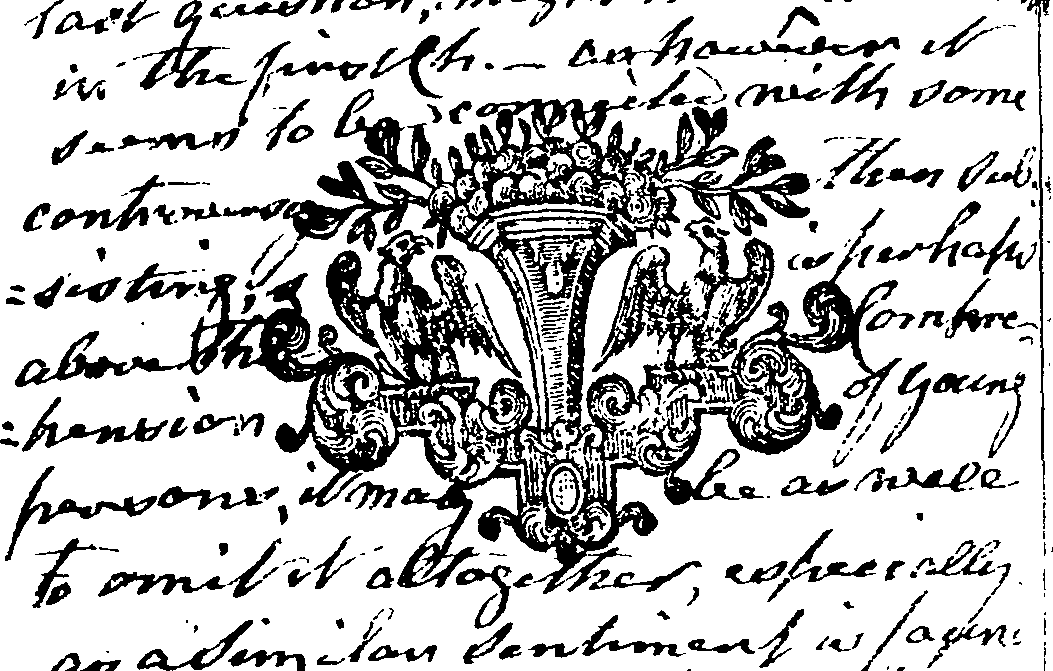 last question, might
in the first Ch. — as however it
seems to be compiled with some
controversy then sub
=sisting, & is perhaps
above the Compre-
=hension of young
persons, it may be as well
to omit it altogether, especially
as a similar sentiment is